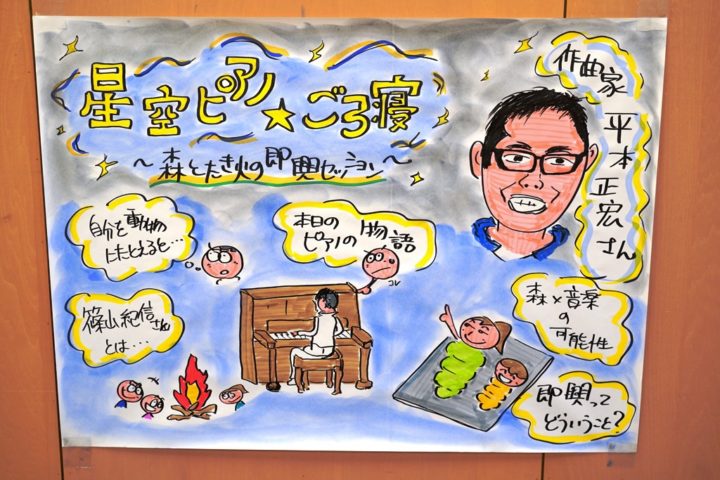 星空ピアノ★ごろ寝
～森とたき火の即興セッション～
作曲家
平本正宏さん
自分を動物
にたとえると…
本日の
ピアノの物語
コレ
篠山紀信さん
とは…
森×音楽
の
可能性
即興って
どういうこと?